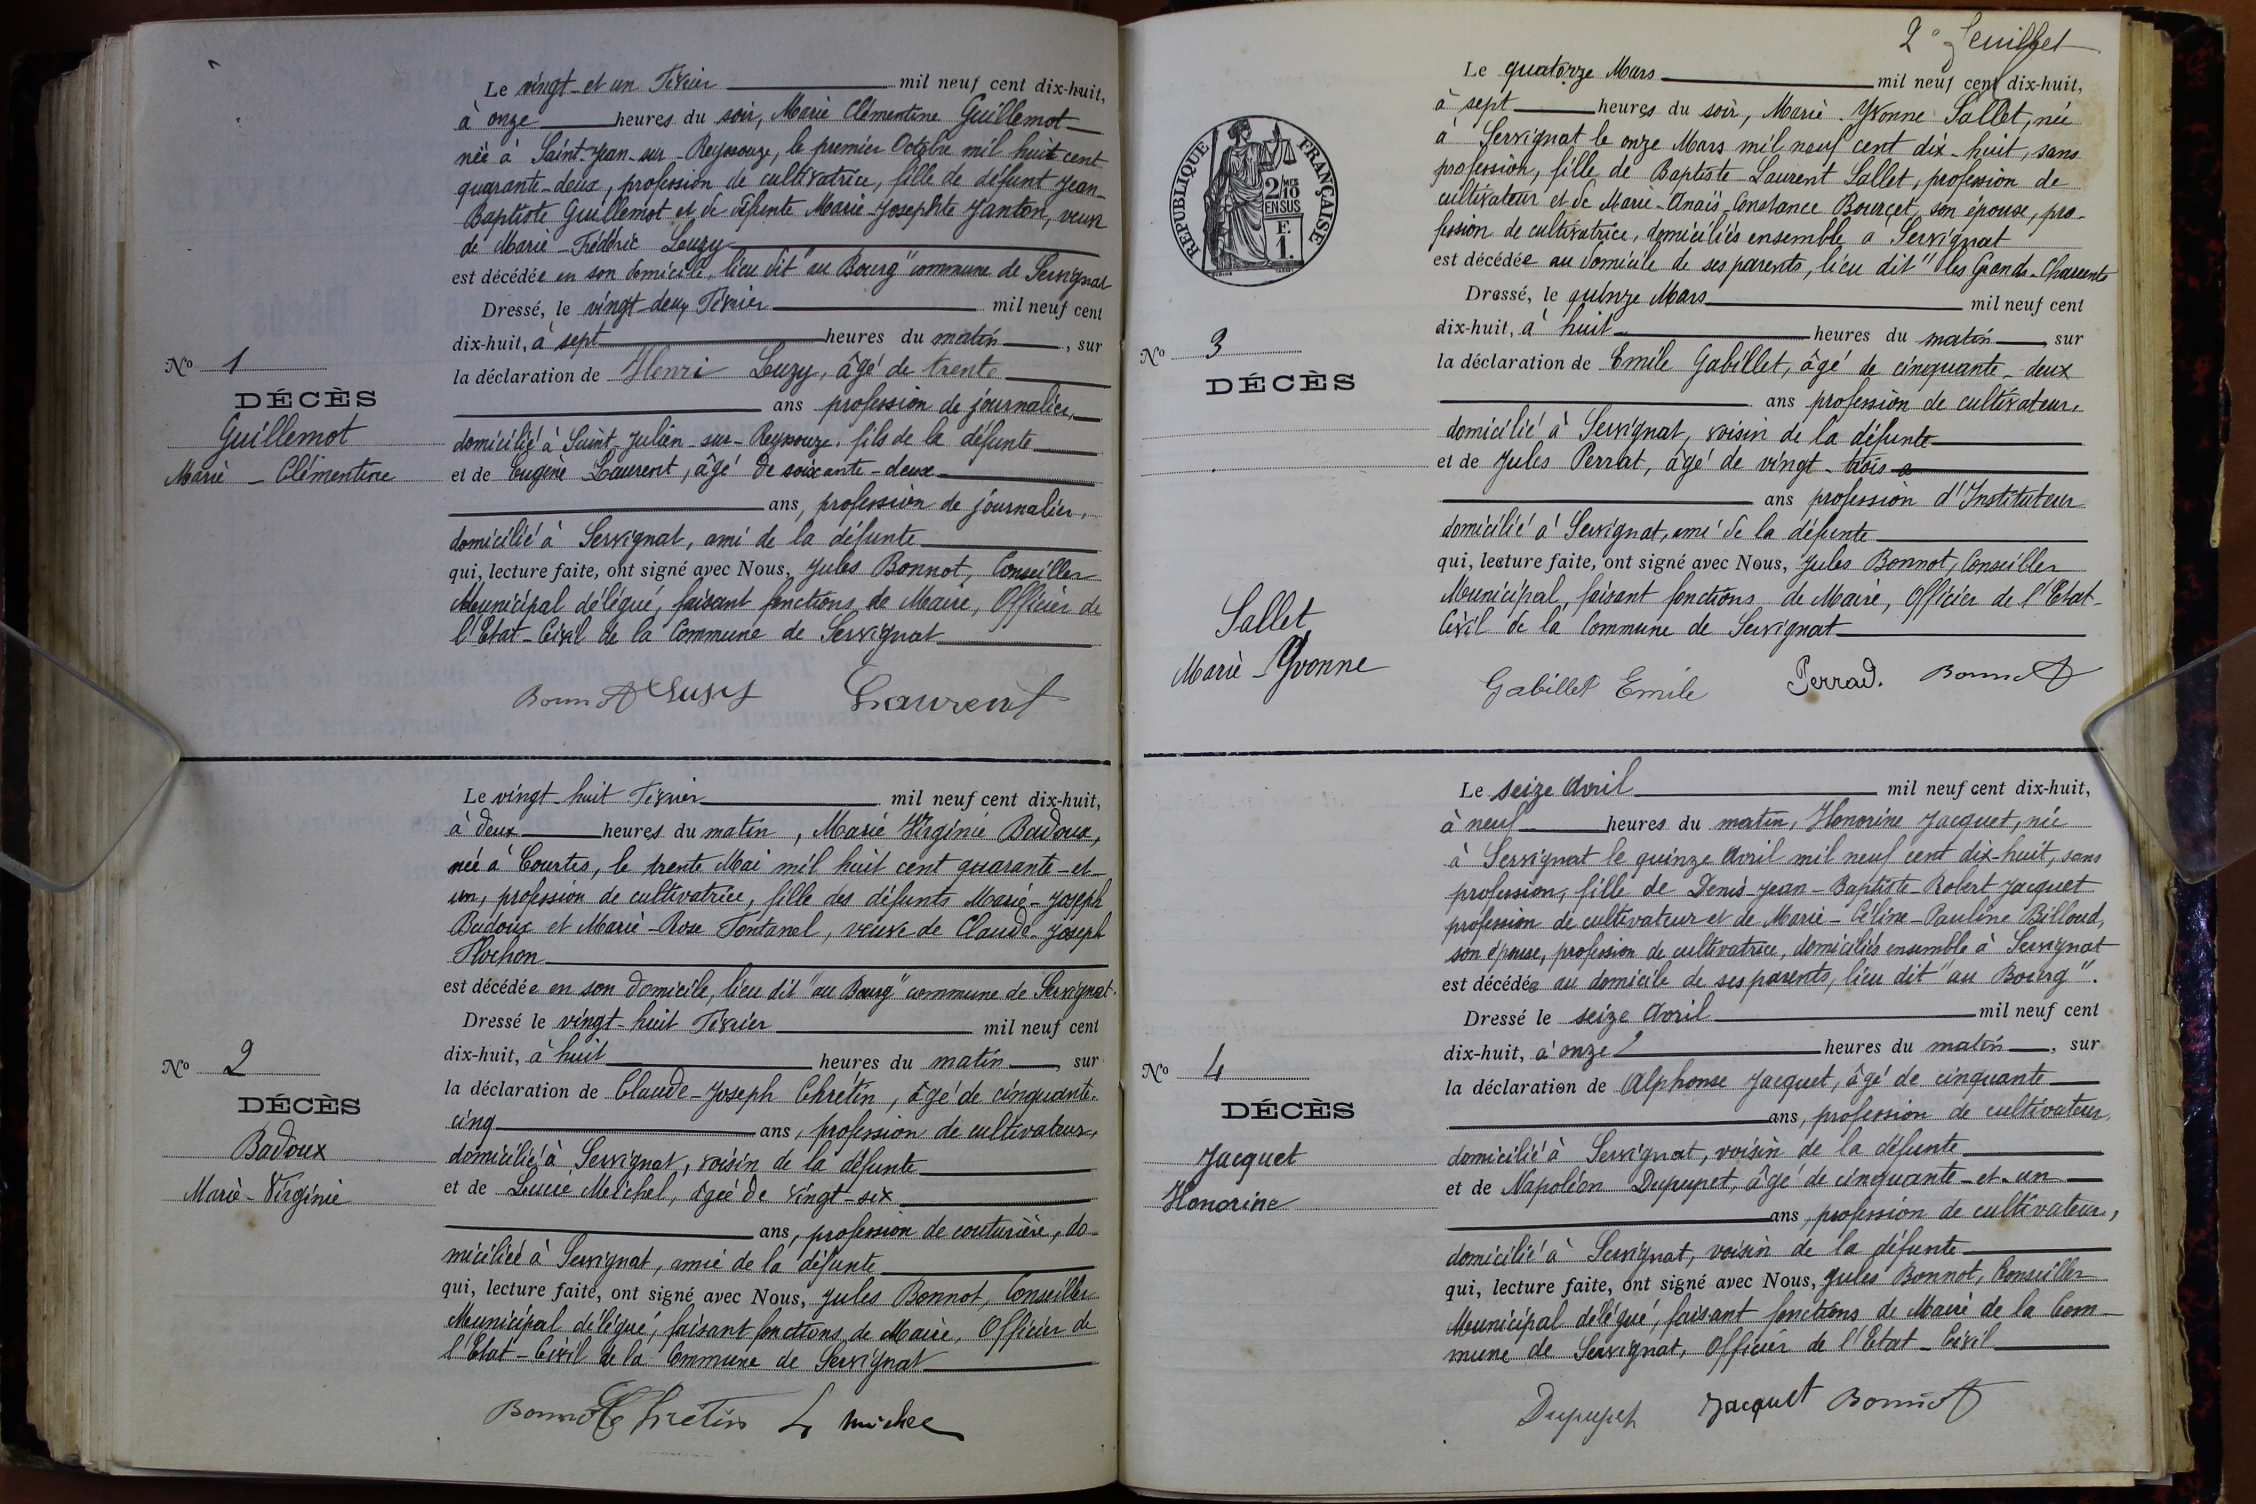 Le vingt-et un Février mil neuf cent dix-huit,
à onze heures du soir, Marie Clémentine Guillemot
née à Saint-Jean-sur-Reyssouze, le premier Octobre mil huit cent
quarante-deux, profession de cultivatrice, fille de défunt Jean-
Baptiste Guillemot et de défunte Marie-Josephte Janton, veuve
de Marie-Frédéric Luzy
est décédée en son domicile, lieu dit "au Bourg" commune de Servignat
Dressé, le vingt-deux Février mil neuf cent
dix-huit, à sept heures du matin, sur
la déclaration de Henri Luzy, âgé de trente
ans profession de journalier,
domicilié à Saint-Julien-sur-Reyssouze, fils de la défunte
et de Eugène Laurent, âgé de soixante-deux
ans, profession de journalier,
domicilié à Servignat, ami de la défunte
qui, lecture faite, ont signé avec Nous, Jules Bonnot, Conseiller
Municipal délégué, faisant fonctions de Maire, Officier de
l'Etat-Civil de la Commune de Servignat
Bonnot Luzy Laurent
No 1
DÉCÈS
Guillemot
Marie-Clémentine
Le vingt-huit Février mil neuf cent dix-huit,
à deux heures du matin, Marie Virginie Badoux,
née à Courtes, le trente Mai mil huit cent quarante-et-
un, profession de cultivatrice, fille des défunts Marie-Joseph
Badoux et Marie-Rose Fontanel, veuve de Claude-Joseph
Hochon
est décédée en son domicile, lieu dit "au Bourg" commune de Servignat.
Dressé le vingt-huit Février mil neuf cent
dix-huit, à huit heures du matin, sur
la déclaration de Claude-Joseph Chrétin, âgé de cinquante-
cinq ans, profession de cultivateur,
domicilié à Servignat, voisin de la défunte
et de Lucie Michel, âgée de vingt-six
ans, profession de couturière, do-
miciliée à Servignat, amie de la défunte
qui, lecture faite, ont signé avec Nous, Jules Bonnot, Conseiller
Municipal délégué, faisant fonctions de Maire, Officier de
l'Etat-Civil de la Commune de Servignat
Bonnot Chrétin L Michel
No 2
DÉCÈS
Badoux
Marie-Virginie
2e feuillet
Le quatorze Mars mil neuf cent dix-huit,
à sept heures du soir, Marie-Yvonne Sallet, née
à Servignat le onze Mars mil neuf cent dix-huit, sans
profession, fille de Baptiste Laurent Sallet, profession de
cultivateur et de Marie-Anaïs-Constance Bourcet, son épouse, pro-
fession de cultivatrice, domiciliés ensemble a Servignat
est décédée au domicile de ses parents, lieu dit "les Grands-
Dressé, le quinze Mars mil neuf cent
dix-huit, à huit heures du matin, sur
la déclaration de Emile Gabillet, âgé de cinquante-deux
ans profession de cultivateur,
domicilié à Servignat, voisin de la défunte
et de Jules Perrat, âgé de vingt-trois
ans profession d'Instituteur
domicilié à Servignat, ami de la défunte
qui, lecture faite, ont signé avec Nous, Jules Bonnot, Conseiller
Municipal, faisant fonctions de Maire, Officier de l'Etat-
Civil de la Commune de Servignat
Gabillet Emile Perrad. Bonnot
RÉPUBLIQUE FRANÇAISE
2/10 MES
EN SUS
F.
1.
No 3
DÉCÈS
Sallet
Marie-Yvonne
Le seize Avril mil neuf cent dix-huit,
à neuf heures du matin, Honorine Jacquet, née
à Servignat le quinze Avril mil neuf cent dix-huit, sans
profession, fille de Denis-Jean-Baptiste-Robert Jacquet
profession de cultivateur et de Marie-Céline-Pauline Billoud,
son épouse, profession de cultivatrice, domiciliés ensemble à Servignat
est décédée au domicile de ses parents, lieu dit "au Bourg".
Dressé le seize Avril mil neuf cent
dix-huit, à onze heures du matin, sur
la déclaration de Alphonse Jacquet, âgé de cinquante
ans, profession de cultivateur,
domicilié à Servignat, voisin de la défunte
et de Napoléon Dupupet, âgé de cinquante-et-un
ans, profession de cultivateur,
domicilié à Servignat, voisin de la défunte
qui, lecture faite, ont signé avec Nous, Jules Bonnot, Conseiller
Municipal délégué, faisant fonctions de Maire de la Com-
mune de Servignat, Officier de l'Etat-Civil
Dupupet Jacquet Bonnot
No 4
DÉCÈS
Jacquet
Honorine